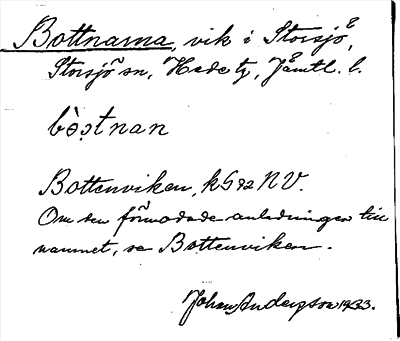 Bottnarna, vik i Storsjö,
Storsjö sn, Hede tg, Jämtl. l.
bò̀ṣtnan
Bottenviken, kG 92 NV.
Om den förmodade anledningen till
namnet, se Bottenviken.
Johan Anderzson 1933.